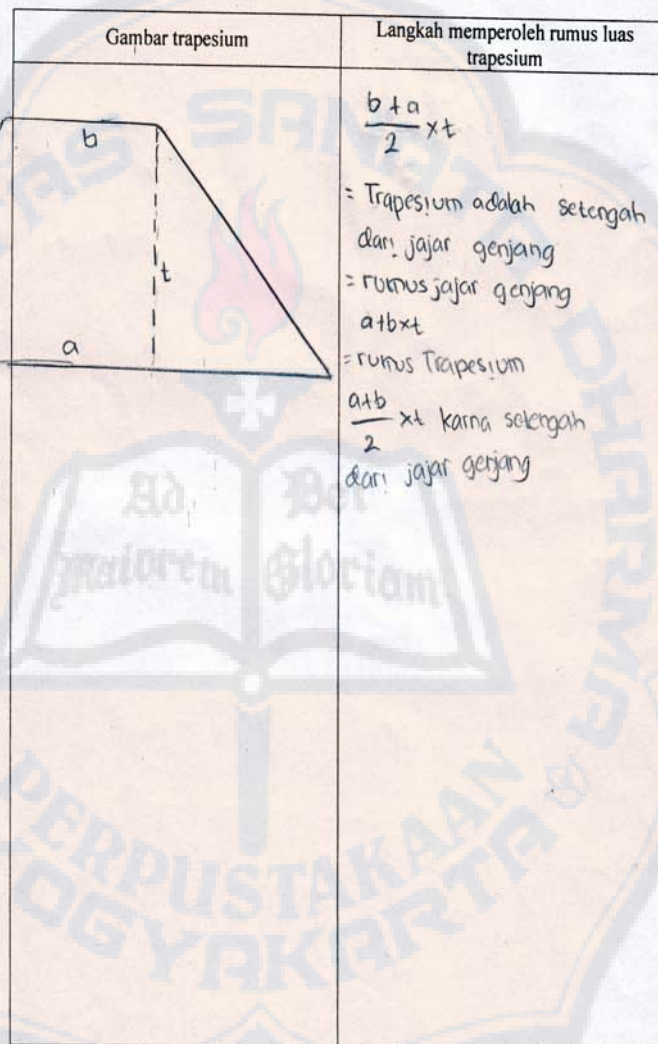 Gambar trapesium
Langkah memperoleh rumus luas
trapesium
b
t
a
b + a
2
× t
= Trapesium adalah setengah
dari jajar genjang
= rumus jajar genjang
a+b×t
= rumus Trapesium
a+b
2
×t karna setengah
dari jajar genjang
SANATA DHARMA
Ad
maiorem
Dei
Gloriam
PERPUSTAKAAN
YOGYAKARTA